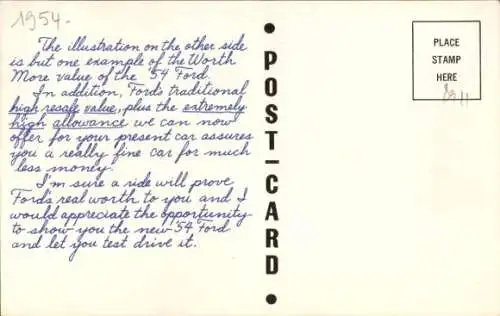 1954-
The illustration on the other side
is but one example of the Worth
More value of the '54 Ford.
In addition, Ford's traditional
high resale value, plus the extremely
high allowance we can now
offer for your present car assures
you a really fine car for much
less money.
I'm sure a ride will prove
Ford's real worth to you and I
would appreciate the opportunity
to show you the new '54 Ford
and let you test drive it.
POST-CARD
PLACE
STAMP
HERE